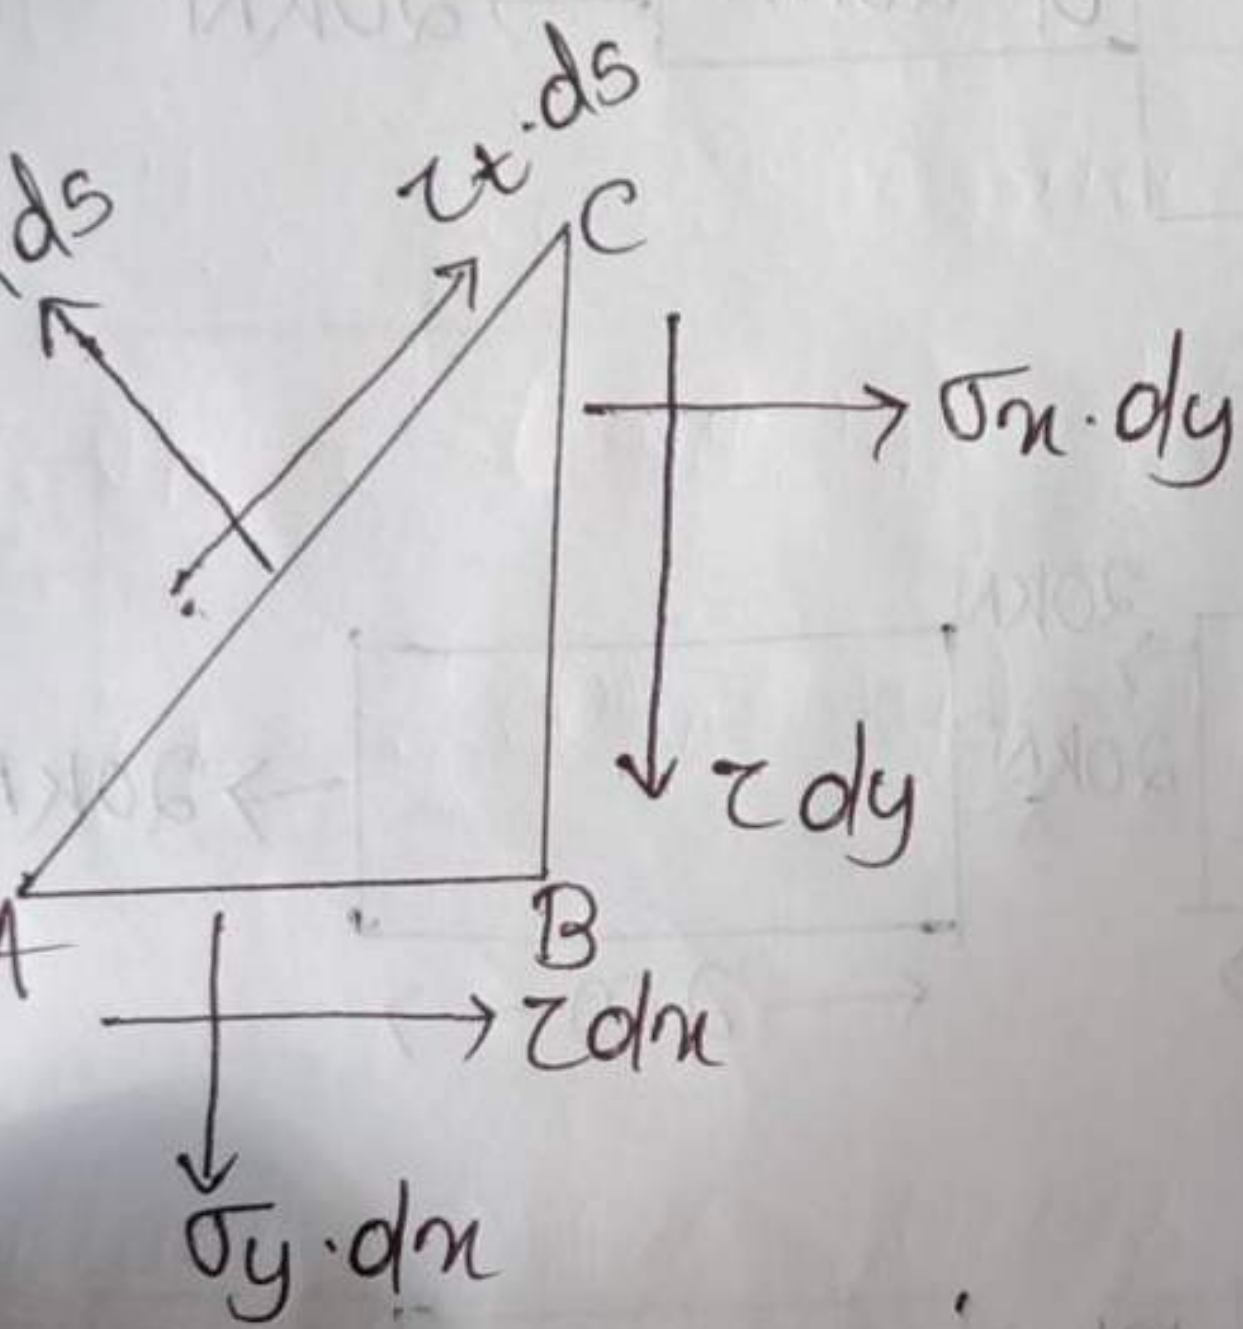 τt.ds
ds
C
σx.dy
τdy
A
B
τdx
σy.dx